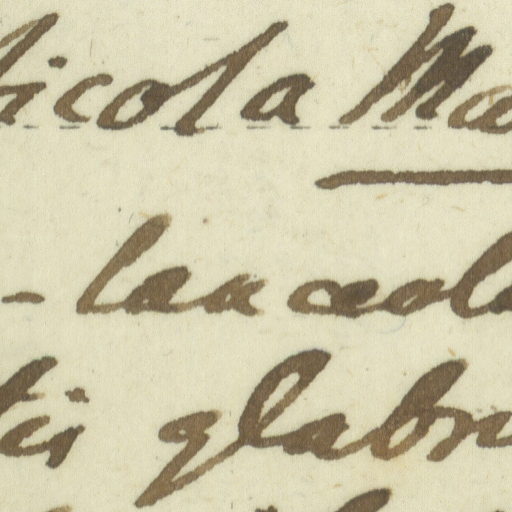 icola Ma
- lanceola
tis glabr